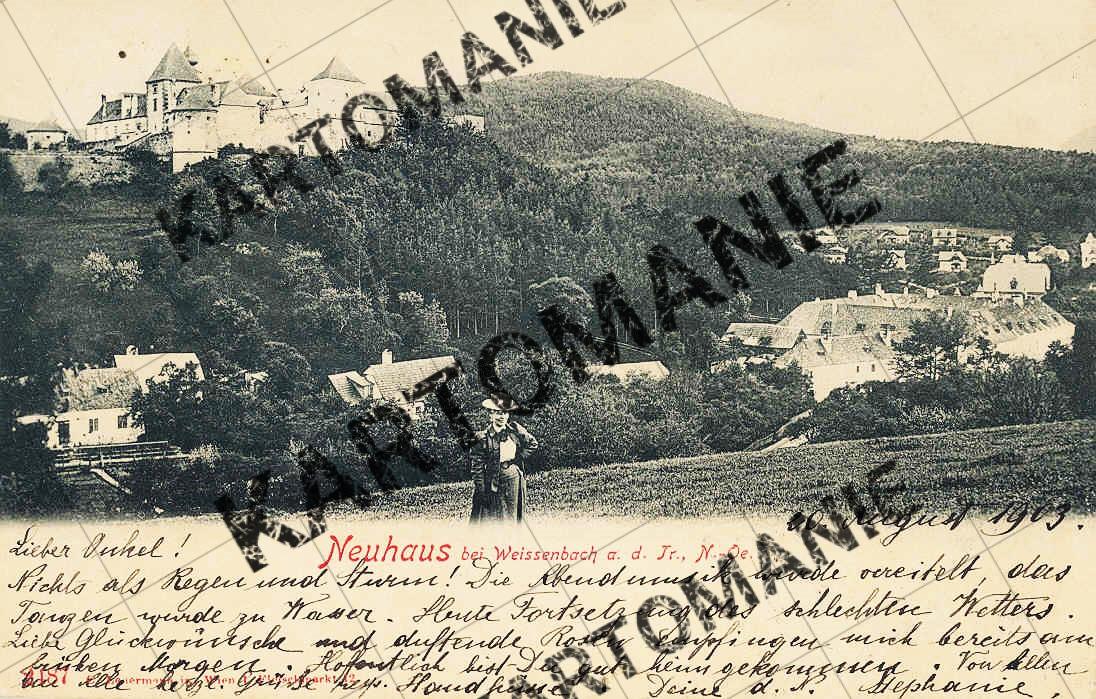 KARTOMANIE
KARTOMANIE
KARTOMANIE
August 1903.
Neuhaus bei Weissenbach a. d. Tr., N.-Oe.
Lieber Onkel!
Nichts als Regen und Sturm! Die Abendmusik wurde vereitelt, das
Tanzen wurde zu Wasser. Heute Fortsetzung des schlechten Wetters.
Liebe Glückwünsche und duftende Rosen empfingen mich bereits am
frühen Morgen. Hoffentlich bist Du gut heimgekommen. Von allen
an alle herzl. Grüße Handküsse Deine d. N. Stephanie
4187 Wien I. Fleischmarkt 12